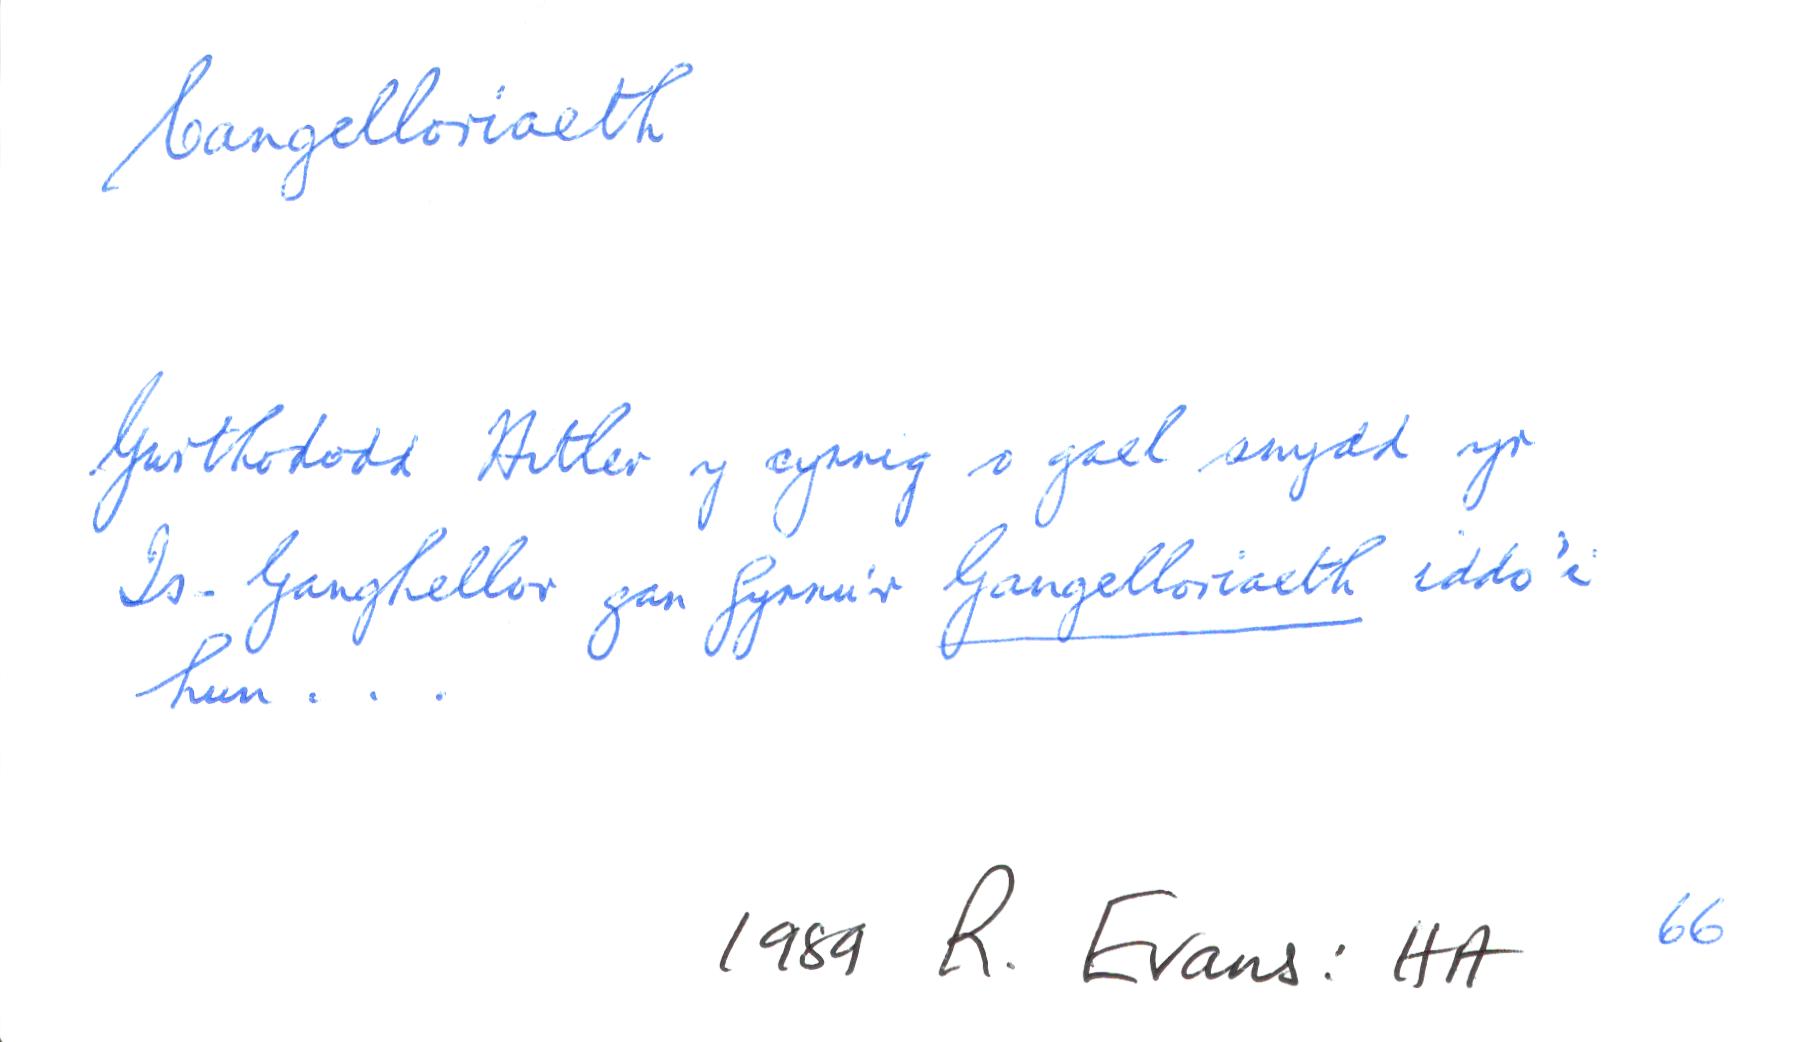 Cangelloriaeth
Gwrthododd Hitler y cynnig o gael swydd yr
Is-Ganghellor gan fynnu'r Gangelloriaeth iddo'i
hun . . .
1989 R. Evans: HA 66